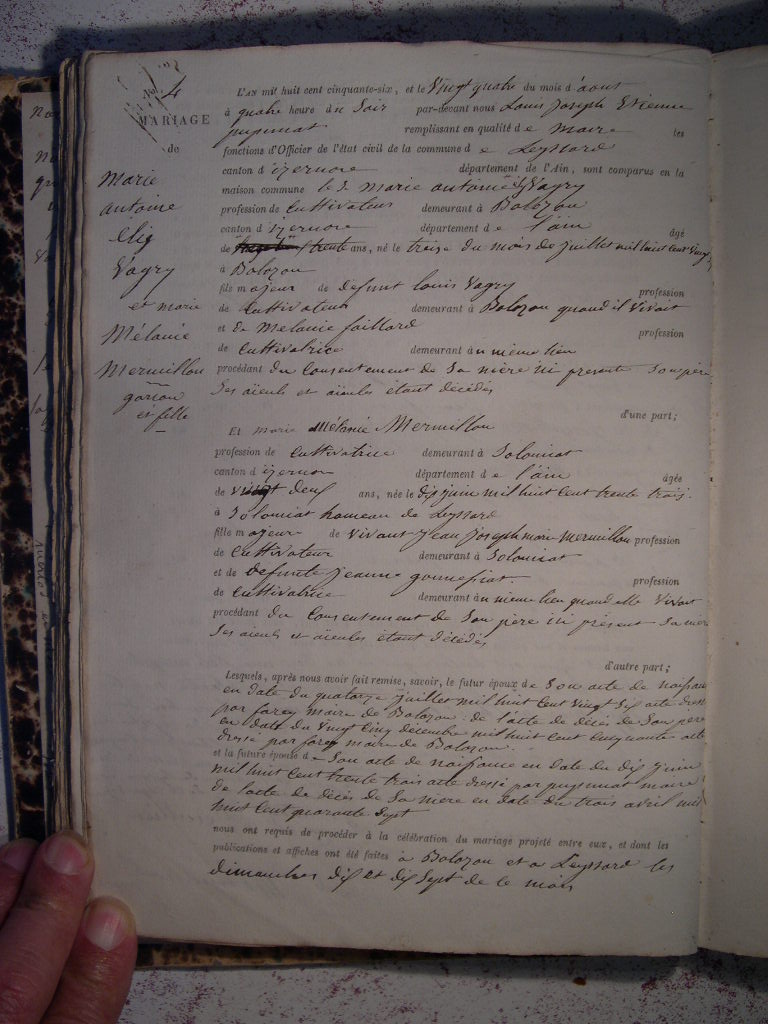 N° 4
MARIAGE
de
Marie
antoine
Elie
Vagry
et marie
Mélanie
Mermillon
garcon
et fille
L'AN mil huit cent cinquante-six, et le Vingt quatre du mois d'aout
à quatre heure du Soir par-devant nous Louis Joseph Etienne
puginat remplissant en qualité de Maire les
fonctions d'Officier de l'état civil de la commune de Leyssard
canton d'izernore département de l'Ain, sont comparus en la
maison commune le S. marie antoine Elie Vagry
profession de Cultivateur demeurant à Bolozon
canton d'izernore département de l'ain âgé
de trente ans, né le treize du mois de juillet mil huit cent Vingt
à Bolozon
fils majeur de defunt louis Vagry profession
de Cultivateur demeurant à Bolozon quand il Vivait
et de Melanie faillard profession
de Cultivatrice demeurant au meme lieu
procédant du Consentement de Sa mère ici presente Son père
Ses aïeuls et aïeules étant décédés
d'une part;
Et marie Mélanie Mermillon
profession de Cultivatrice demeurant à Solomiat
canton d'izernore département de l'ain âgée
de vingt deux ans, née le dix juin mil huit cent trente trois
à Solomiat hameau de Leyssard
fille majeure de vivant jean joseph marie Mermillon profession
de Cultivateur demeurant à Solomiat
et de defunte jeanne profession
de Cultivatrice demeurant au meme lieu quand elle Vivait
procédant du Consentement de Son père ici présent Sa mère
Ses aieuls et aïeules étant décédés
d'autre part;
Lesquels, après nous avoir fait remise, savoir, le futur époux de Son acte de naissance
en date du quatorze juillet mil huit Cent Vingt Six acte dressé
par farey maire de Bolozon de l'acte de décès de Son père
en date du Vingt Cinq décembre mil huit cent cinquante acte
dressé par farey maire de Bolozon.
et la future épouse de Son acte de naissance en date du dix juin
mil huit Cent trente trois acte dressé par puginat maire
de l'acte de décès de Sa mère en date du trois avril mil
huit Cent quarante Sept
nous ont requis de procéder à la célébration du mariage projeté entre eux, et dont les
publications et affiches ont été faites à Bolozon et a Leyssard les
dimanches dix et dix Sept de ce mois